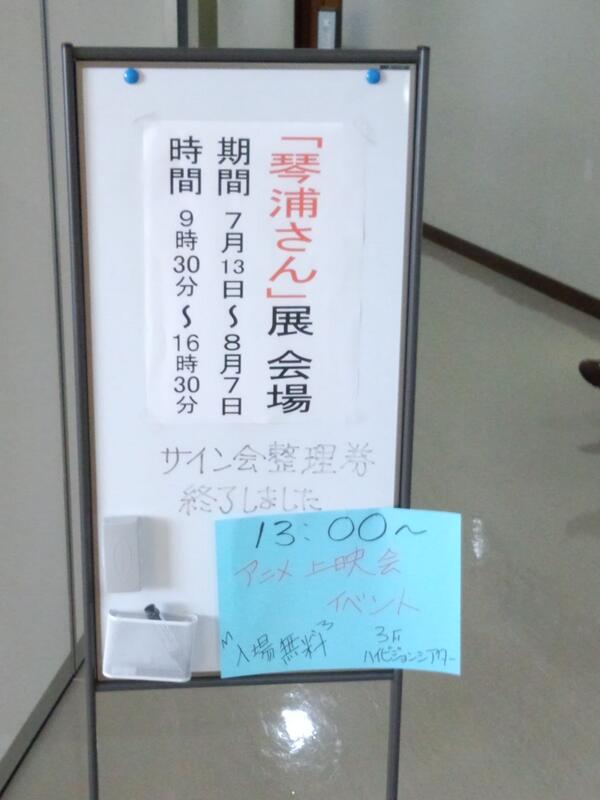 「琴浦さん」展 会場
期間 7月13日～8月7日
時間 9時30分～16時30分
サイン会整理券
終了しました
13:00～
アニメ上映会
イベント
入場無料
3F
ハイビジョンシアター